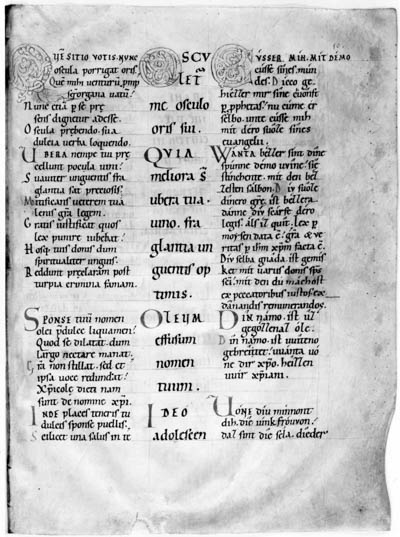 UĒ SITIO VOTIS. NUNC
oscula porrigat oris.
Quē mihi venturū, pmp
serp organa vatū.
Nunc etiā p se pre
sens dignetur adesse.
Oscula prebendo. sua
dulcia verba loquendo.
UBERA nempe tui pre
cellunt pocula vini.
Suaviter unguentis fra
glantia sat preciosis.
Mitificans veterem tua
lenis gra legem.
Gratis iustificat quos
lex punire iubebat.
tuis donis dum
spiritualiter unguis.
Reddunt preclaram post
turpia crimina famam.
SPONSE tuū nomen
olei pdulce liquamen.
Quod se dilatat. dum
largo nectare manat.
Grā non stillat. sed et
ipsa voce redundat.
Xpicole dicti nam
sunt de nomine xpi.
INDE places teneris tu
dulcis sponse puellis.
Scilicet una salus in te
OSCU
LET
me osculo
oris sui.
QVIA
meliora st
ubera tua
uino. fra
glantia un
guentis op
timis.
OLEUM
effusum
nomen
tuum.
IDEO
adolescen
USSER MIH. MIT DEMO
cusse sines. mun
des. Dicco ge
hiezzer mir sine cuonft
p pphetas. nu cume er
selbo. unte cusse mih
mit dero suole sines
euangelii.
WANTA bezzer sint dine
spunne demo uvine. sie
stinchente. mit den bez
zesten salbon. Div suole
dinero gre. ist bezzera
danne div scarfe dero
legis. als iz quit. lex p
moysen data ē. gra & ve
ritas p ihm xpm facta ē.
Div selba gnada. ist gemis
ket mit variis donis sps
sci. mit den du machost
ex peccatoribus iustos. ex
damnandis remunerandos.
DIN namo. ist uz
gegozzenaz ole.
Din namo. ist uuiteno
gebreitet. uuanta uo
ne dir xpo. heizzen
uuir xpiani.
UONE diu minnont
dih die iunkfrouvon.
daz sint die sela. die der